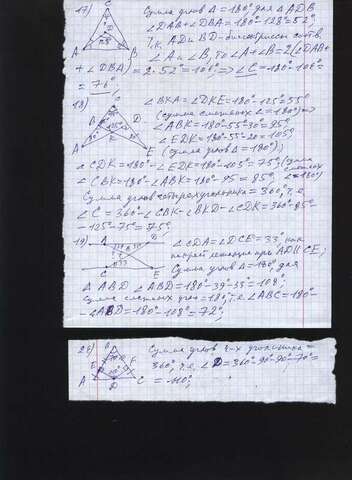 17) Сумма углов Δ = 180° для ΔADB
∠DAB+∠DBA = 180°-128° = 52°
т.к. AD и BD - биссектрисы
∠A и ∠B, то ∠A+∠B = 2(∠DAB +
+ ∠DBA) = 2·52° = 104° => ∠C = 180°-104° =
= 76°
18) ∠BKA = ∠DKE = 180°-125° = 55°
(сумма смежных ∠ = 180°) =>
∠ABK = 180-55-30 = 95°
∠EDK = 180-55-20 = 105°
(сумма углов Δ = 180°);
∠CDK = 180° - ∠EDK = 180-105 = 75°
∠CBK = 180 - ∠ABK = 180-95 = 85°
Сумма углов четырехугольника = 360°, т.е.
∠C = 360° - ∠CBK - ∠BKD - ∠CDK = 360-85-
- 125-75 = 75°;
19) ∠CDA = ∠DCE = 33° как
лежащие при AD || CE;
Сумма углов Δ = 180°, для
ΔABD ∠ABD = 180-39-33 = 108;
Сумма смежных углов = 180°, т.е. ∠ABC = 180-
- ∠ABD = 180-108 = 72°;
26) Сумма углов 4-х угольника =
360, т.е. ∠D = 360-90-90-70 =
= 110°;